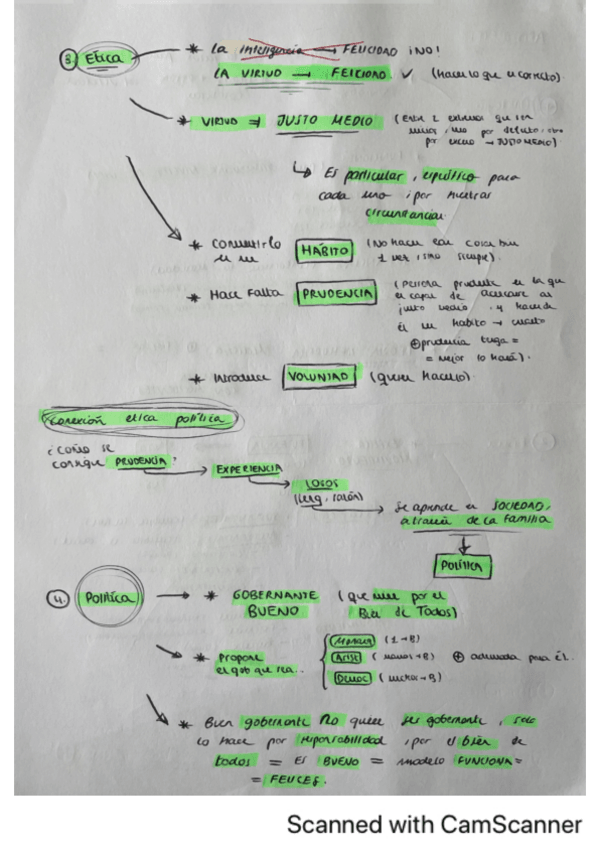 3. Etica
* La inteligencia → FELICIDAD ¡NO!
LA VIRTUD → FELCIDAD. ✓ (Hacer lo que es correcto)
* VIRTUD ⇒ JUSTO MEDIO (Entre 2 extremos que son
malos, uno por defecto, otro
por exceso → JUSTO MEDIO)
↳ Es particular, específico para
cada uno, por nuestras
circunstancias.
* Convertirlo
en un HÁBITO (No hacer las cosas bien
1 vez, sino siempre).
* Hace Falta PRUDENCIA (Persona prudente es la que
es capaz de acercarse al
justo medio y hace de
él un hábito → cuanto
⊕ prudencia tenga =
= mejor lo hará).
* Introduce VOLUNTAD (querer hacerlo).
Conexión etica política
¿Cómo se
consigue PRUDENCIA?
→ EXPERIENCIA
→ LOGOS
(leng, razón)
→ Se aprende en SOCIEDAD,
a través de la familia
↓
POLÍTICA
4. Política
→ * GOBERNANTE (que mire por el
BUENO Bien de Todos)
* Propone
el gob que sea..
(1→B)
Arist (manos→B) ⊕ adecuada para él.
Democ (muchos→B)
* Bien gobernante NO quiere ser gobernante, solo
lo hace por responsabilidad, por el bien de
todos = Es BUENO = modelo FUNCIONA =
= FELICES.
Scanned with CamScanner